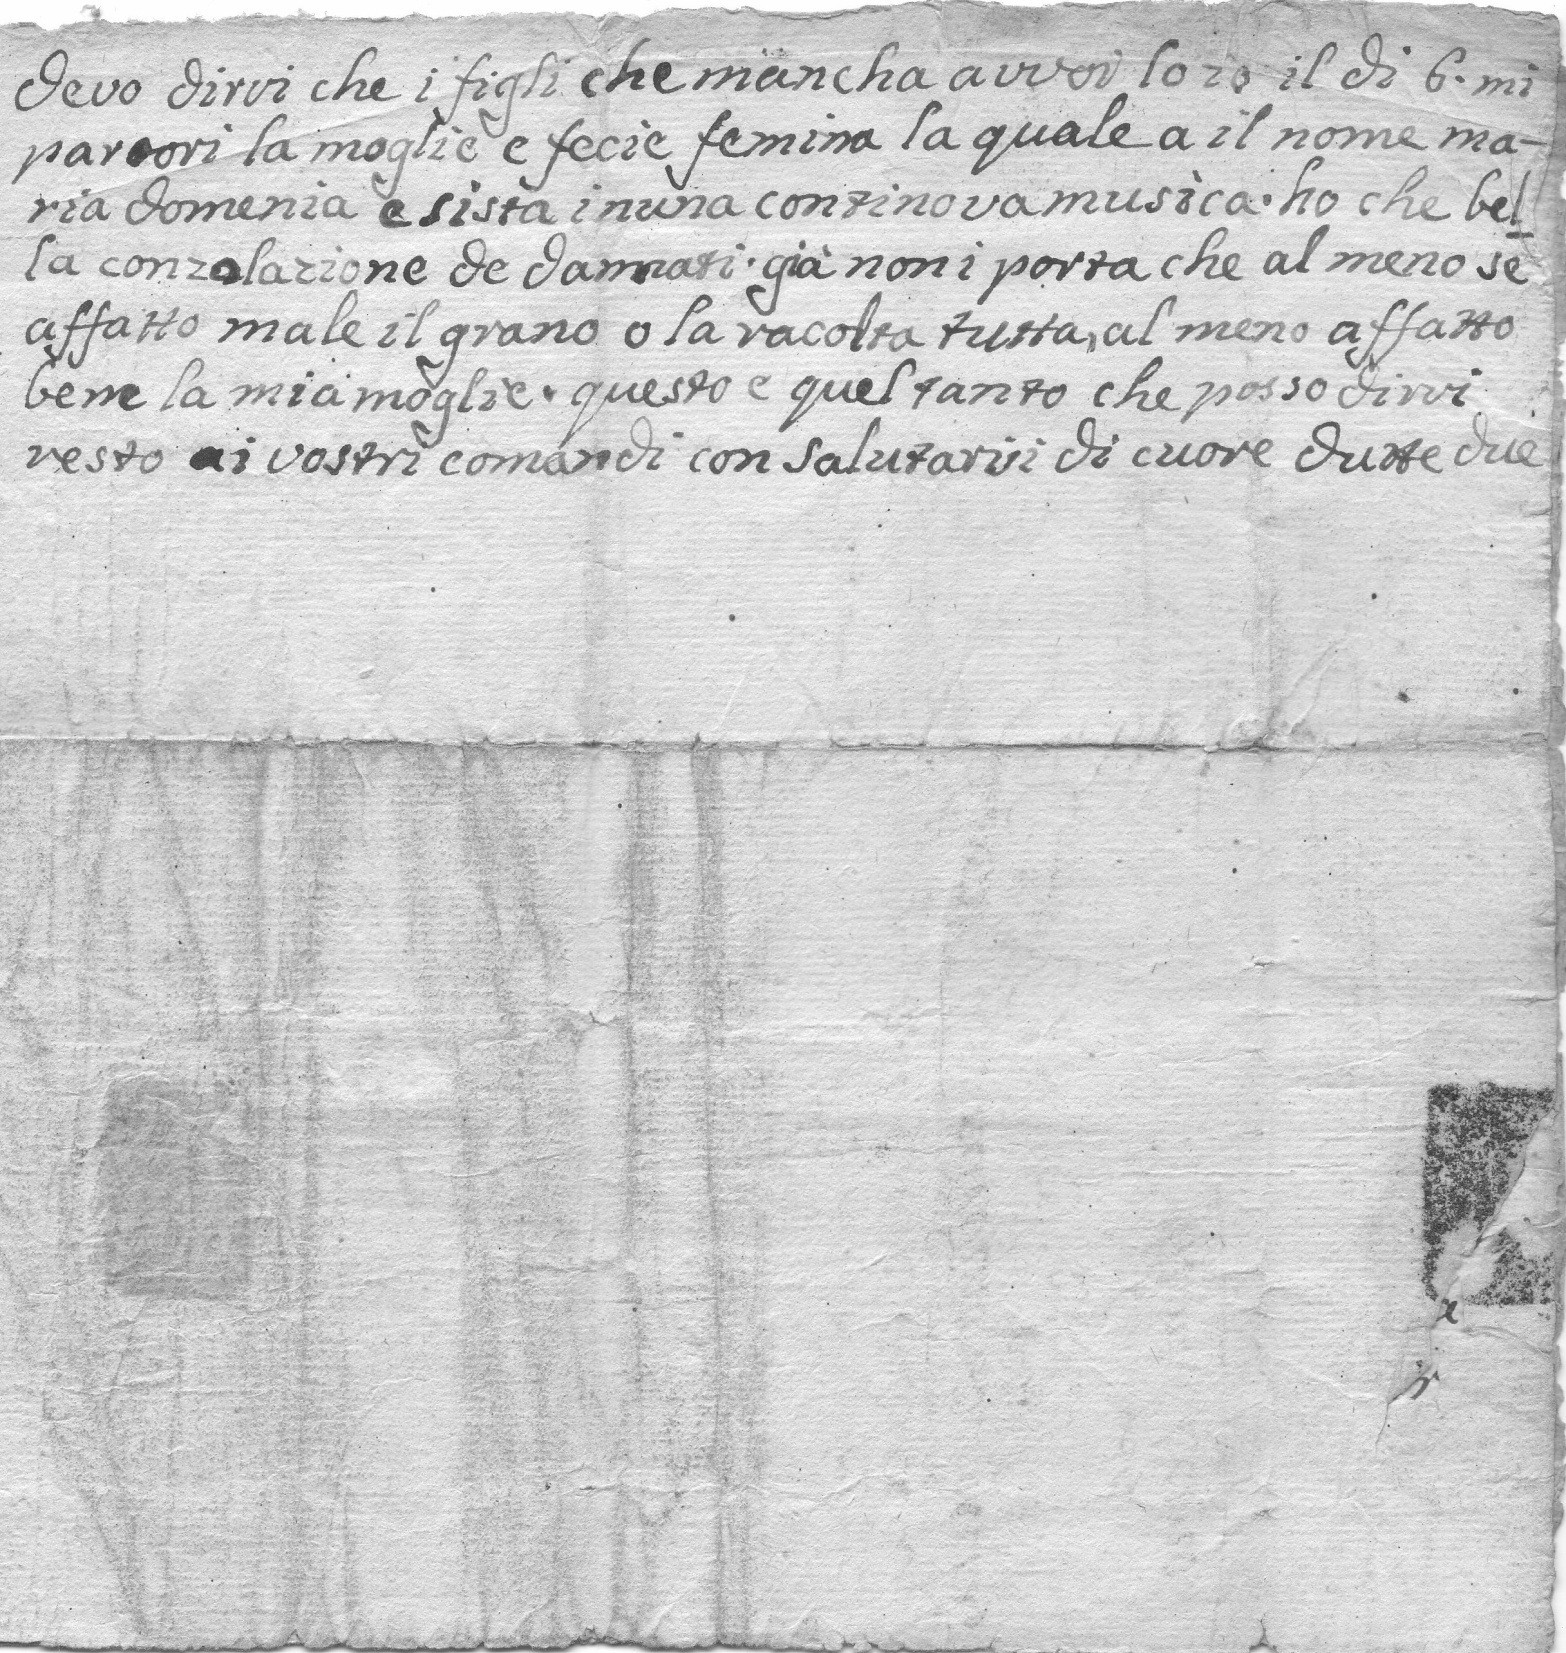 devo dirvi che i figli che mancha avvoi lo io il di 6. mi
partori la moglie e fecie femina la quale a il nome ma-
ria domenia e sista inuna continova musica. ho che bel
la conzolazione de dannati. già non i porta che al meno se
affatto male il grano o la racolta tutta, al meno affatto
bene la mia moglie. questo e quel tanto che posso dirvi
resto ai vostri comandi con salutarvi di cuore dutte due